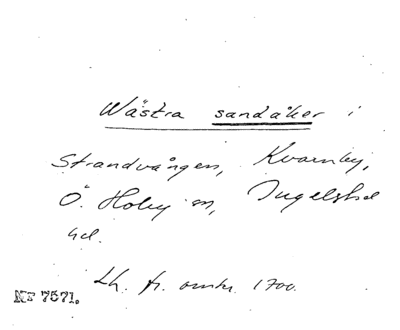 Wästra sandåker i
Strandvången, Kvarnby,
Ö. Hoby sn, Ingelstad
hd.
Lh. fr. omkr. 1700.
NF 7571.